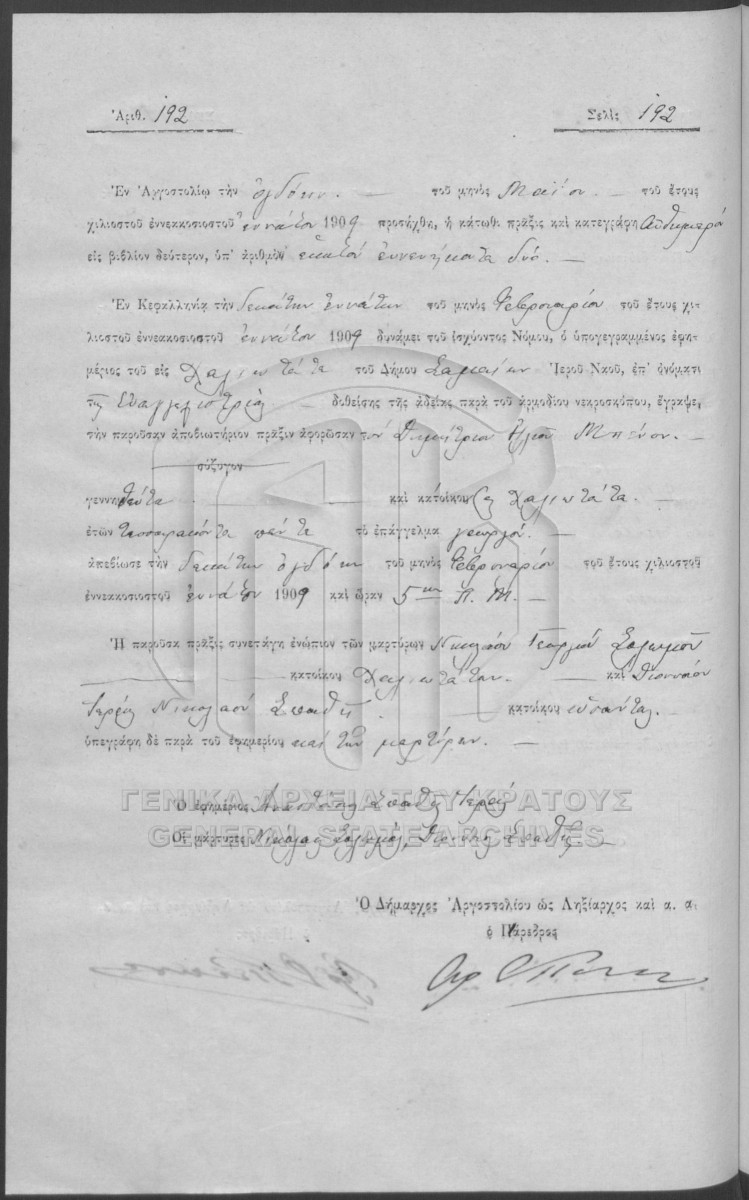 Ἀριθ. 192 Σελὶς 192
Ἐν Ἀργοστολίῳ τὴν ὀγδόην. — τοῦ μηνὸς Μαΐου. — τοῦ ἔτους
χιλιοστοῦ ἐννεακοσιοστοῦ ἐννάτου 1909 προσήχθη, ἡ κάτωθι πρᾶξις καὶ κατεγράφη αὐθημερὸν
εἰς βιβλίον δεύτερον, ὑπ' ἀριθμὸν ἑκατὸν ἐνενήκοντα δύο. —
Ἐν Κεφαλληνίᾳ τὴν δεκάτην ἐννάτην τοῦ μηνὸς Φεβρουαρίου τοῦ ἔτους χι-
λιοστοῦ ἐννεακοσιοστοῦ ἐννάτου 1909 δυνάμει τοῦ ἰσχύοντος Νόμου, ὁ ὑπογεγραμμένος ἐφη-
μέριος τοῦ εἰς Χαλιωτάτα τοῦ Δήμου Σαμαίων Ἱεροῦ Ναοῦ, ἐπ' ὀνόματι
τῆς Εὐαγγελιστρίας — δοθείσης τῆς ἀδείας παρὰ τοῦ ἁρμοδίου νεκροσκόπου, ἔγραψε,
τὴν παροῦσαν ἀποβιωτήριον πρᾶξιν ἀφορῶσαν τὸν Δημήτριον Μπένον. —
σύζυγον
γεννηθέντα — καὶ κατοίκου Χαλιωτάτα. —
ἐτῶν τεσσαράκοντα πέντε τὸ ἐπάγγελμα γεωργόν. —
ἀπεβίωσε τὴν δεκάτην ὀγδόην τοῦ μηνὸς Φεβρουαρίου τοῦ ἔτους χιλιοστοῦ
ἐννεακοσιοστοῦ ἐννάτου 1909 καὶ ὥραν 5ην Π. Μ. —
Ἡ παροῦσα πρᾶξις συνετάγη ἐνώπιον τῶν μαρτύρων Νικολάου Γεωργίου Σολωμοῦ
— κατοίκου Χαλιωτάτων. — καὶ Διονυσίου
Ἱερέως Νικολάου Σπαθῆ. — κατοίκου ὡσαύτως. —
ὑπεγράφη δὲ παρὰ τοῦ ἐφημερίου καὶ τῶν μαρτύρων. —
ΓΕΝΙΚΑ ΑΡΧΕΙΑ ΤΟΥ ΚΡΑΤΟΥΣ
Ὁ ἐφημέριος Σπαθῆς Ἱερεύς
GENERAL STATE ARCHIVES
Οἱ μάρτυρες Νικόλαος Σολωμός, Διονύσης Σπαθῆς —
Ὁ Δήμαρχος Ἀργοστολίου ὡς Ληξίαρχος καὶ α. α.
ὁ Πάρεδρος